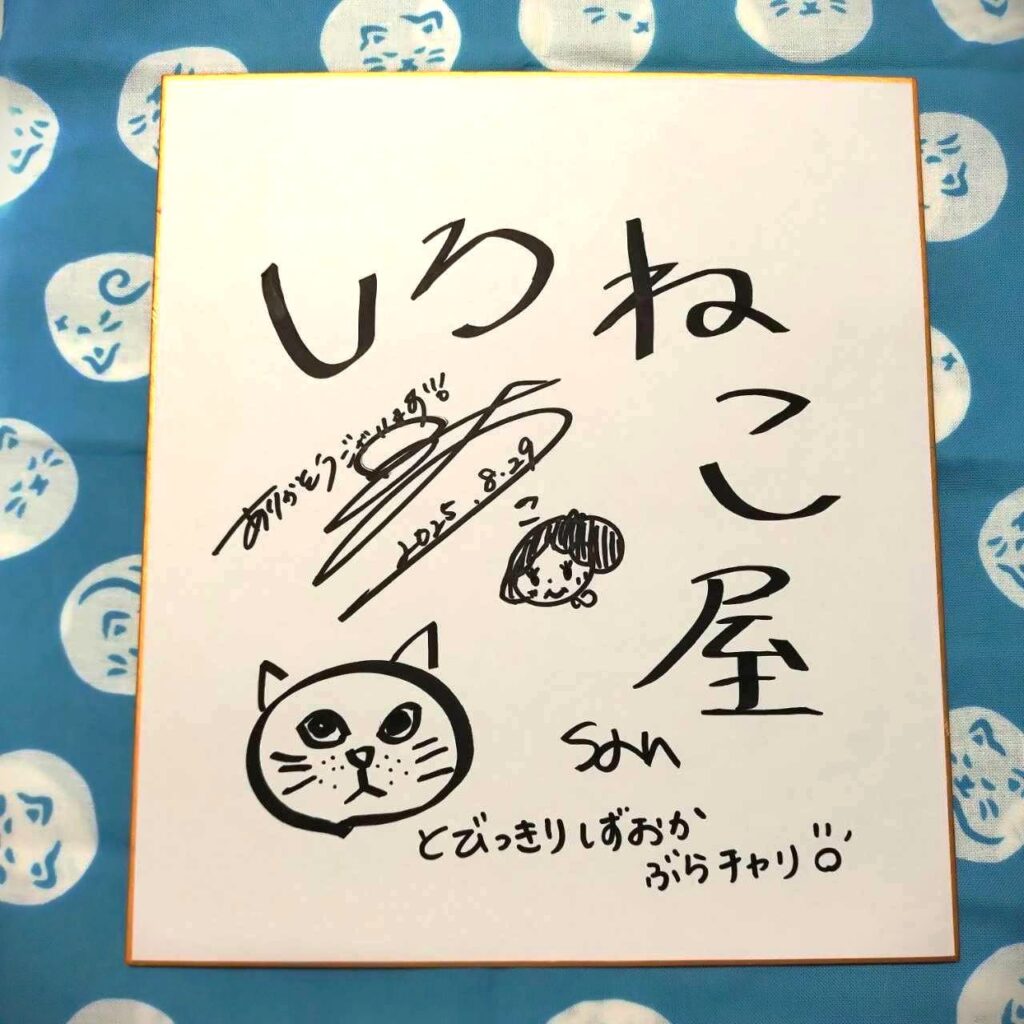 しろねこ屋
ありがとうございます!!!
2025.8.29
san
とびっきりしずおか
ぶらチャリ!!